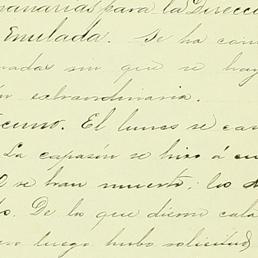 para la Direcc
Enulada. Se ha con
sin que se hay
extraordinaria.
El lunes se cas
La capazón se hizo á
se han muerto; los
De la que dieron cala
luego hubo solicitud